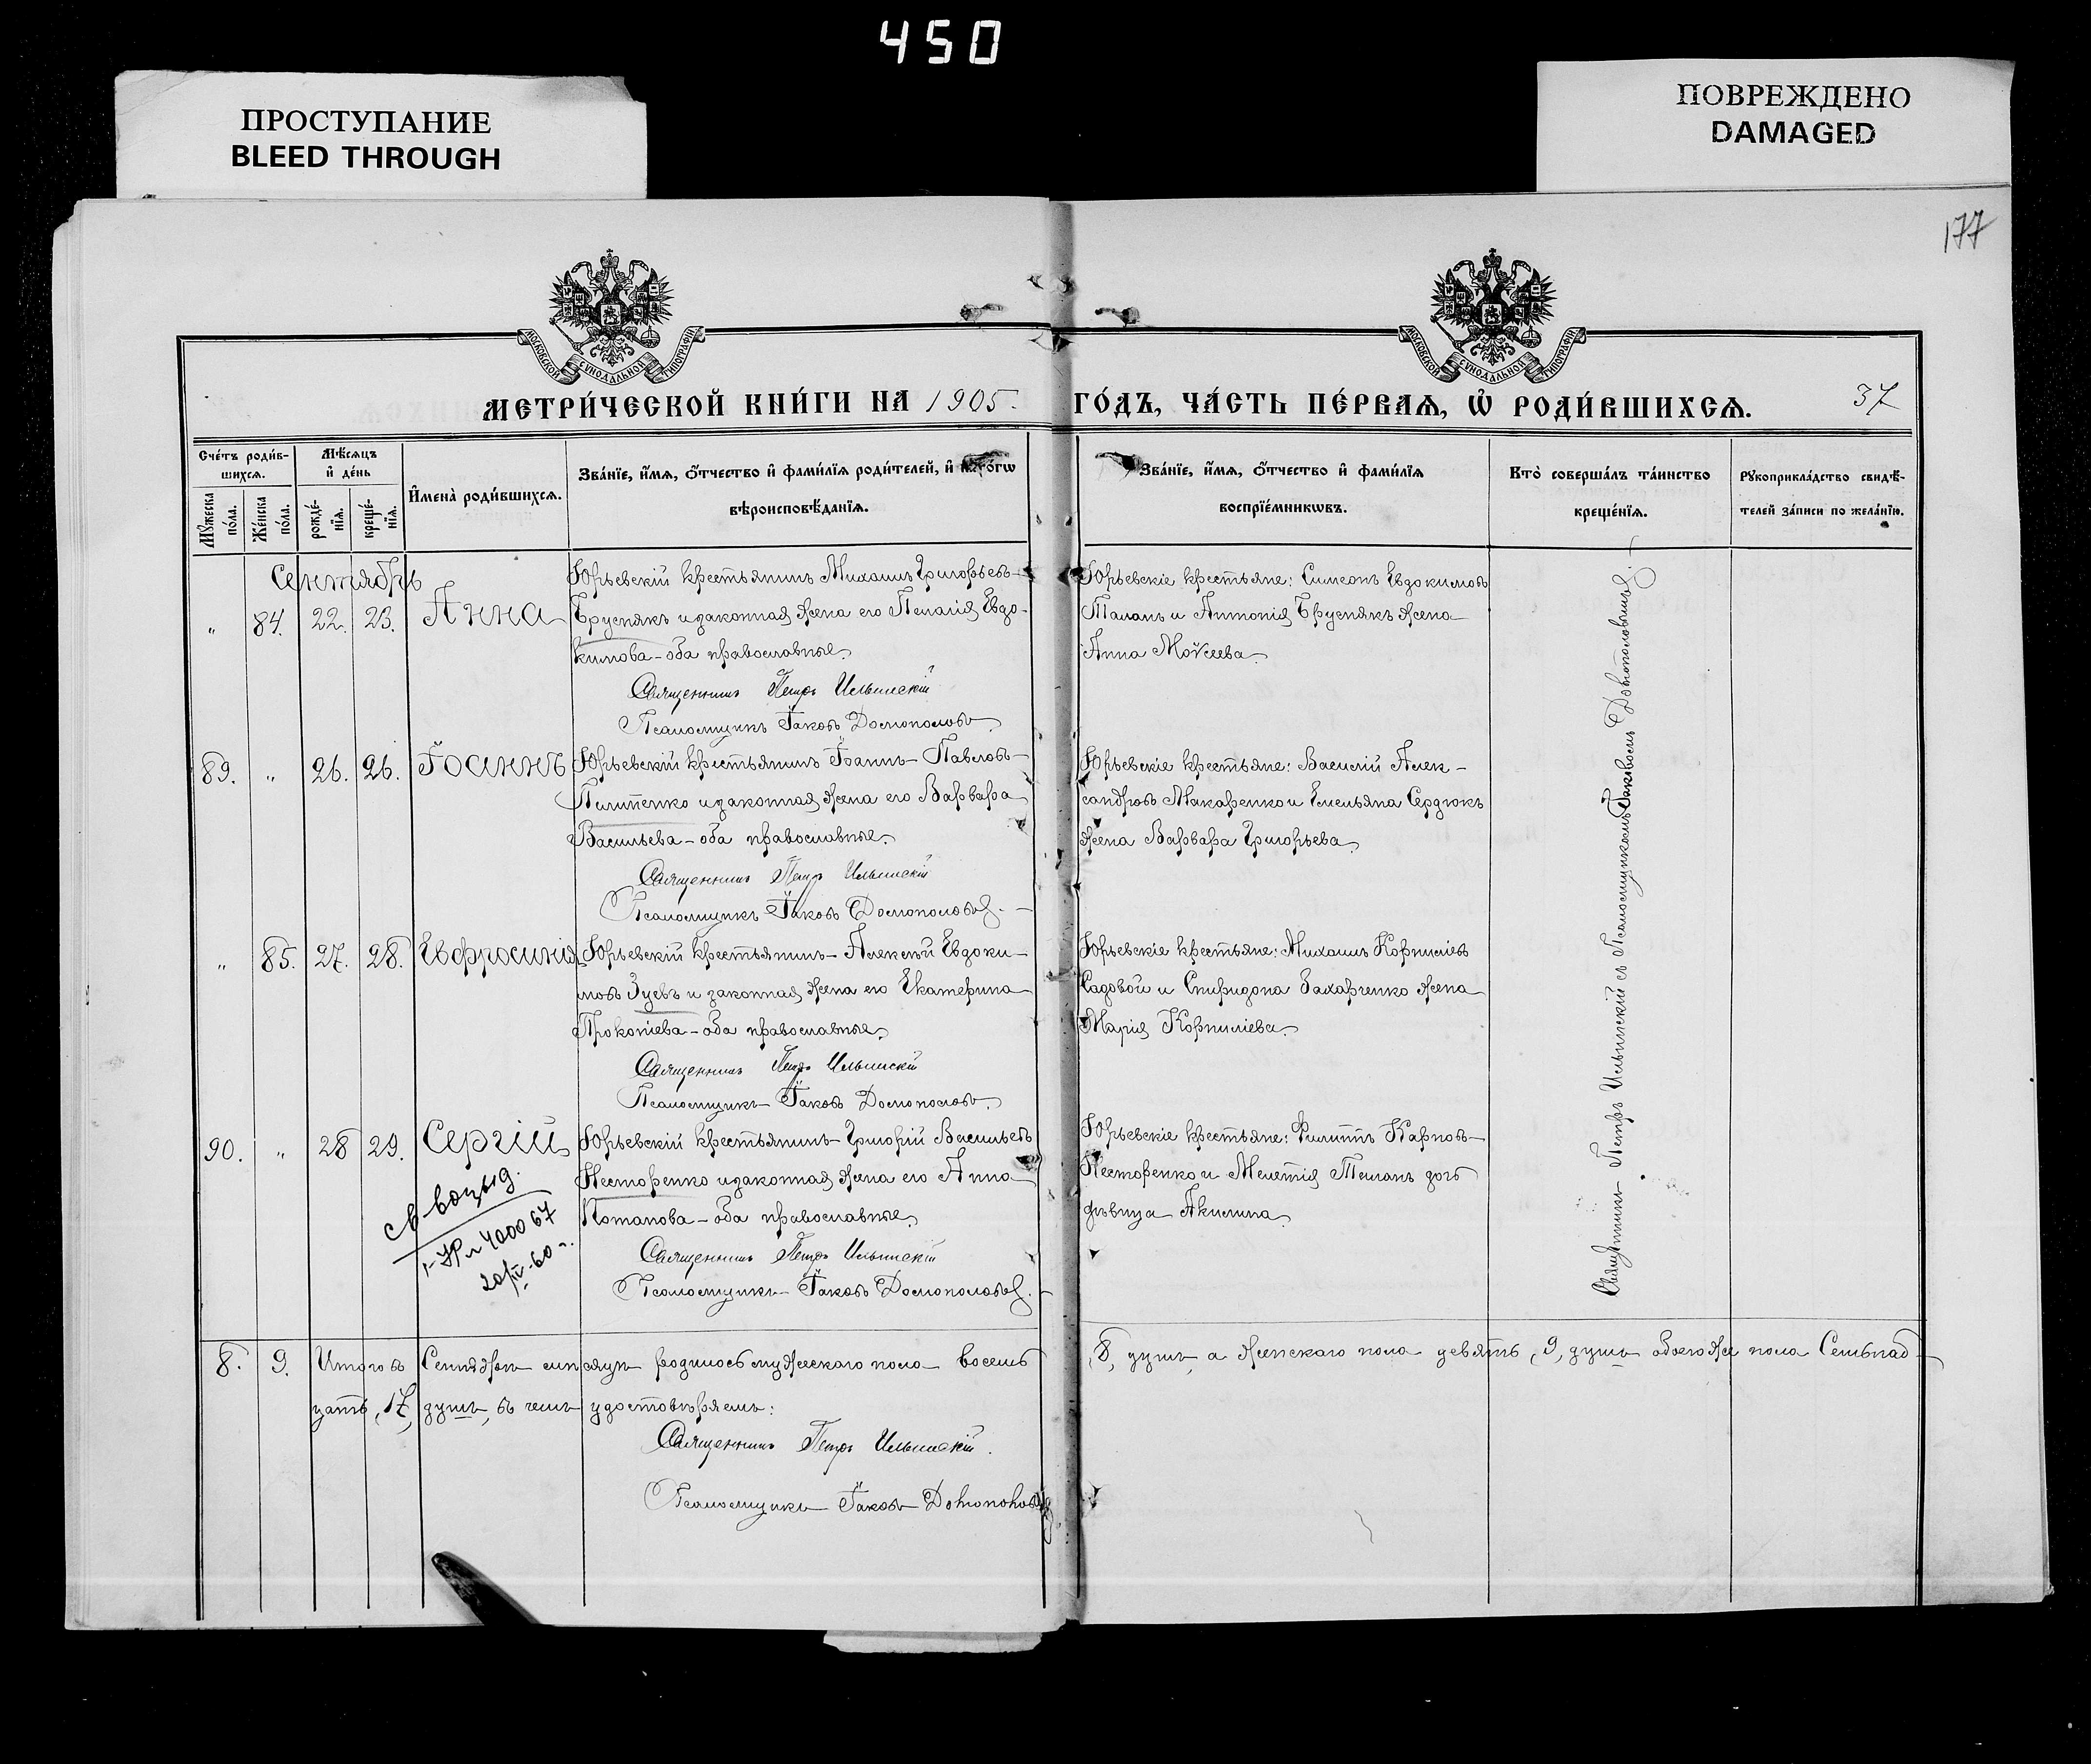 450
ПРОСТУПАНИЕ
BLEED THROUGH
ПОВРЕЖДЕНО
DAMAGED
177
МОСКОВСКОЙ СѴНОДАЛЬНОЙ ТИПОГРАФІИ
МОСКОВСКОЙ СѴНОДАЛЬНОЙ ТИПОГРАФІИ
МЕТРИ́ЧЕСКОЙ КНИ́ГИ НА 1905. ГО́ДЪ, ЧА́СТЬ ПЕ́РВАѦ, Ѽ РОДИ́ВШИХСѦ. 37
Сче́тъ роди́в-
шихсѧ.
Мꙋжеска по́ла.
Же́нска по́ла.
Мѣ́сѧцъ
и҆ де́нь
рожде́-
нїѧ.
креще́-
нїѧ.
И҆мена̀ роди́вшихсѧ.
Зва́нїе, и҆́мѧ, ѻ҆́тчество и҆ фами́лїѧ роди́телей, и҆
вѣроисповѣ́данїѧ.
Зва́нїе, и҆́мѧ, ѻ҆́тчество и҆ фами́лїѧ
воспрїе́мникѡвъ.
Кто̀ соверша́лъ та́инство
креще́нїѧ.
Рꙋкоприкла́дство свидѣ́-
телей за́писи по жела́нїю.
Сентябрь
" 84. 22. 23. Анна
Юрьевскій крестьянинъ Михаилъ Григорьевъ
Бруснякъ и законная жена его Пелагія Евдо-
кимова - оба православные.
Священникъ Петръ Ильинскій
Псаломщикъ Іаковъ Домополовъ
Юрьевскіе крестьяне: Симеонъ Евдокимовъ
Талань и Антонія Бруснякъ жена
Анна Моѵсеева.
89. " 26. 26. Іоаннъ
Юрьевскій крестьянинъ Іоаннъ Павловъ
Пилипенко и законная жена его Варвара
Васильева - оба православные.
Священникъ Петръ Ильинскій
Псаломщикъ Іаковъ Домополовъ.
Юрьевскіе крестьяне: Василій Алек-
сандровъ Макаренко и Емельяна Сердюкъ
жена Варвара Григорьева
" 85. 27. 28. Евфросинія
Юрьевскій крестьянинъ - Алексѣй Евдоки-
мовъ Зуевъ и законная жена его Екатерина
Прокопіева - оба православные.
Священникъ Петръ Ильинскій
Псаломщикъ Іаковъ Домополовъ.
Юрьевскіе крестьяне: Михаилъ Корниліевъ
Садовой и Спиридона Захарченко жена
Марія Корниліева.
90. " 28 29. Сергій
Юрьевскій крестьянинъ - Григорій Васильевъ
Несторенко и законная жена его Анна
Потапова - оба православные.
Священникъ Петръ Ильинскій
Псаломщикъ Іаковъ Домополовъ.
Юрьевскіе крестьяне: Филиппъ Карповъ
Несторенко и Мелетія Талань дочь
дѣвица Акилина.
400067
Священникъ Петръ Ильинскій съ Псаломщикомъ Іаковомъ Домополовымъ.
8. 9. Итого въ Сентябрѣ мѣсяцѣ родилось мужескаго пола восемь 8, душъ, а женскаго пола девять, 9, душъ обоего же пола Семьнад-
цать, 17, душъ, въ чемъ удостовѣряемъ:
Священникъ Петръ Ильинскій.
Псаломщикъ Іаковъ Домополовъ